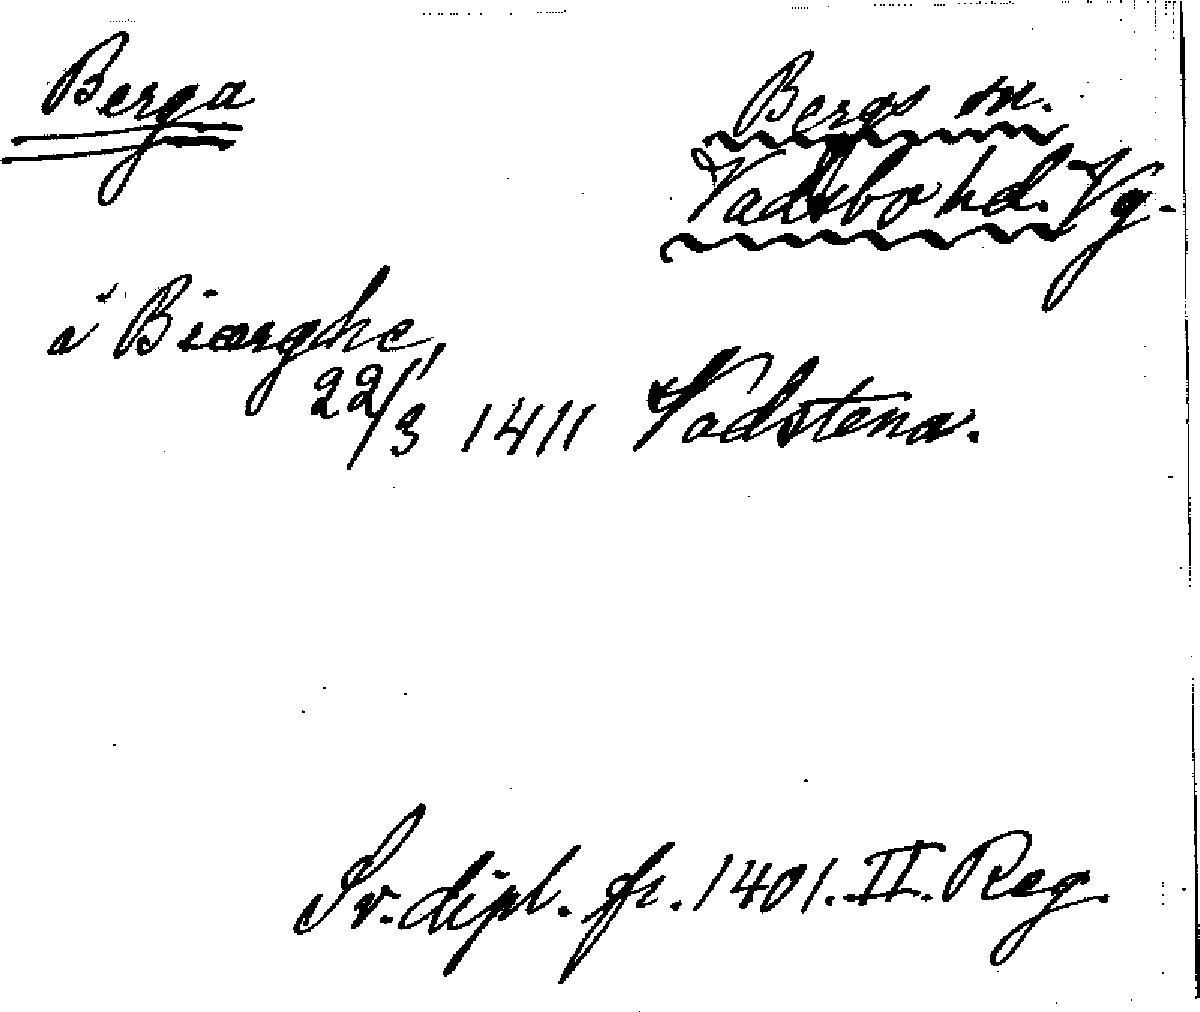 Berga
Bergs sn.
Vadsbo hd. Vg.
i Biærghe,
22/3 1411 Vadstena.
Sv. dipl. fr. 1401. II. Reg.